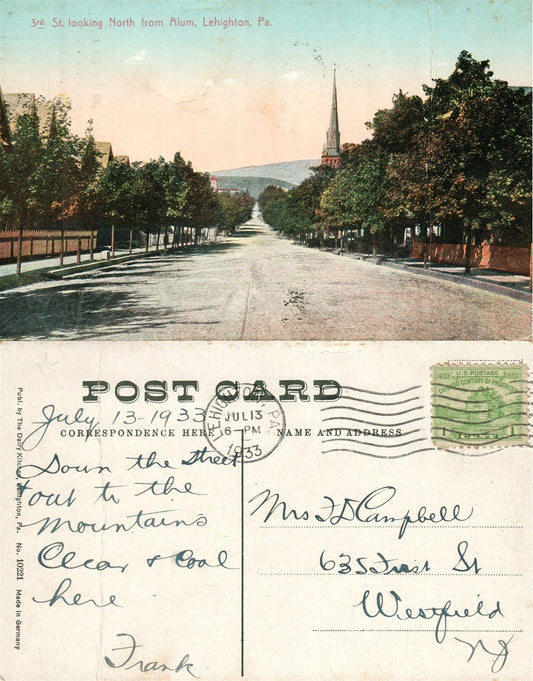 3rd. St. looking North from Alum, Lehighton, Pa.
POST CARD
CORRESPONDENCE HERE
NAME AND ADDRESS
LEHIGHTON, PA.
JUL 13
6-PM
1933
U.S. POSTAGE
1833 1933
CHICAGO CENTURY OF PROGRESS
1 1
Publ. by The Dairy Kitchen, Lehighton, Pa. No. 10221 Made in Germany
July 13-1933
Down the street
& out to the
Mountains
Clear & Cool
here
Frank
Mrs F D Campbell
635 First St
Westfield
NJ